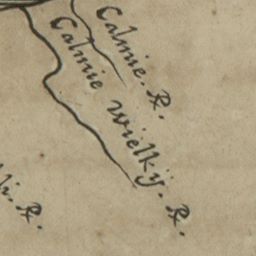 Calmie. R.
Calmie Wielkÿ. R.
R.